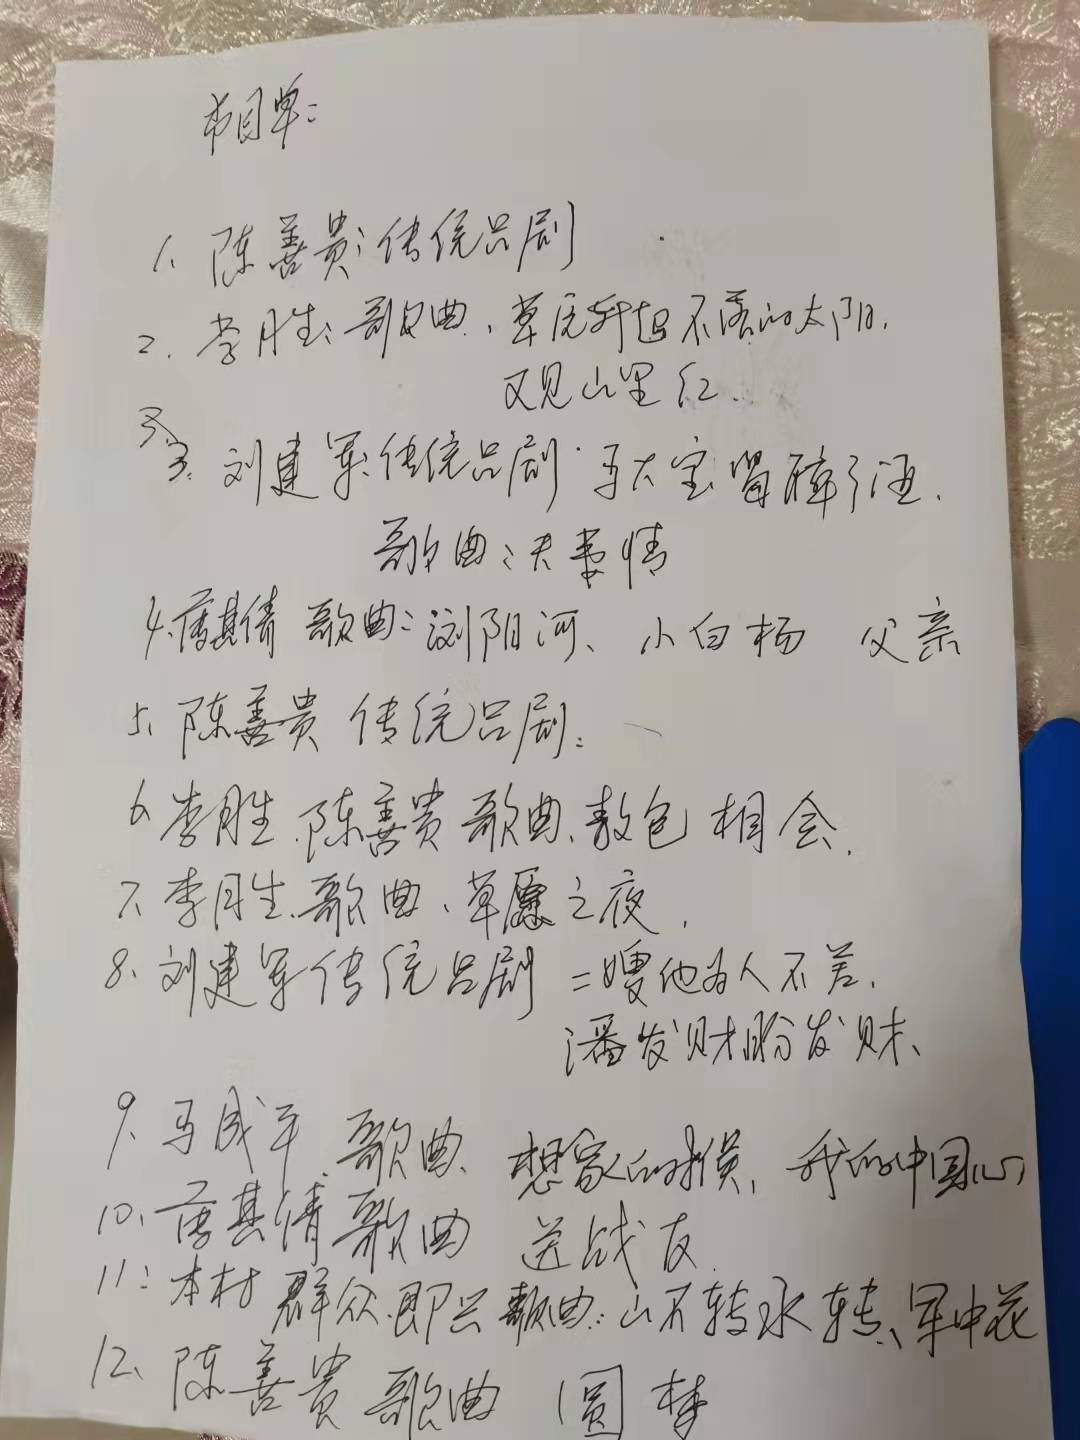 节目单:
1、陈善贵:传统吕剧
2、李月生:歌曲、草原升起不落的太阳,
又见山里红.
3.刘建军:传统吕剧 马大宝喝醉了酒.
歌曲:夫妻情
4、唐其倩 歌曲:浏阳河、小白杨 父亲
5、陈善贵 传统吕剧:
6、李月生、陈善贵 歌曲、敖包相会.
7、李月生、歌曲、草原之夜,
8、刘建军传统吕剧 二嫂他为人不差.
潘发财盼发财、
9、马成平、歌曲、想家的时候、我的中国心
10、唐其倩歌曲 送战友
11:本村群众、即兴歌曲:山不转水转、军中花
12、陈善贵歌曲 圆梦